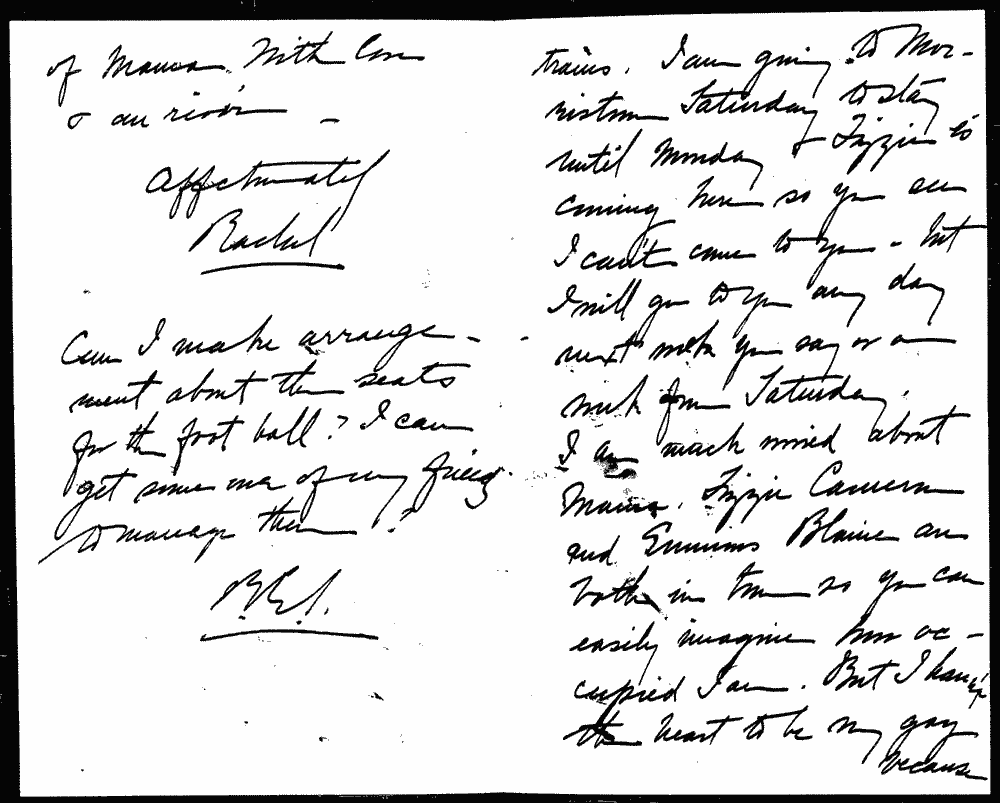 trains. I am going to Mor-
ristown Saturday to stay
until Monday & Lizzie is
coming here so you see
I can't come to you - but
I will go to you any day
next week you say or a
week from Saturday.
I am much worried about
Mama. Lizzie Cameron
and Emmons Blaine are
both in town so you can
easily imagine how oc-
cupied I am. But I haven't
the heart to be very gay
because
of Mama. With love
& au revoir -
Affectionately
Rachel
Can I make arrange-
ment about the seats
for the foot ball? I can
get some one of my friends
to manage them?
R.E.S.